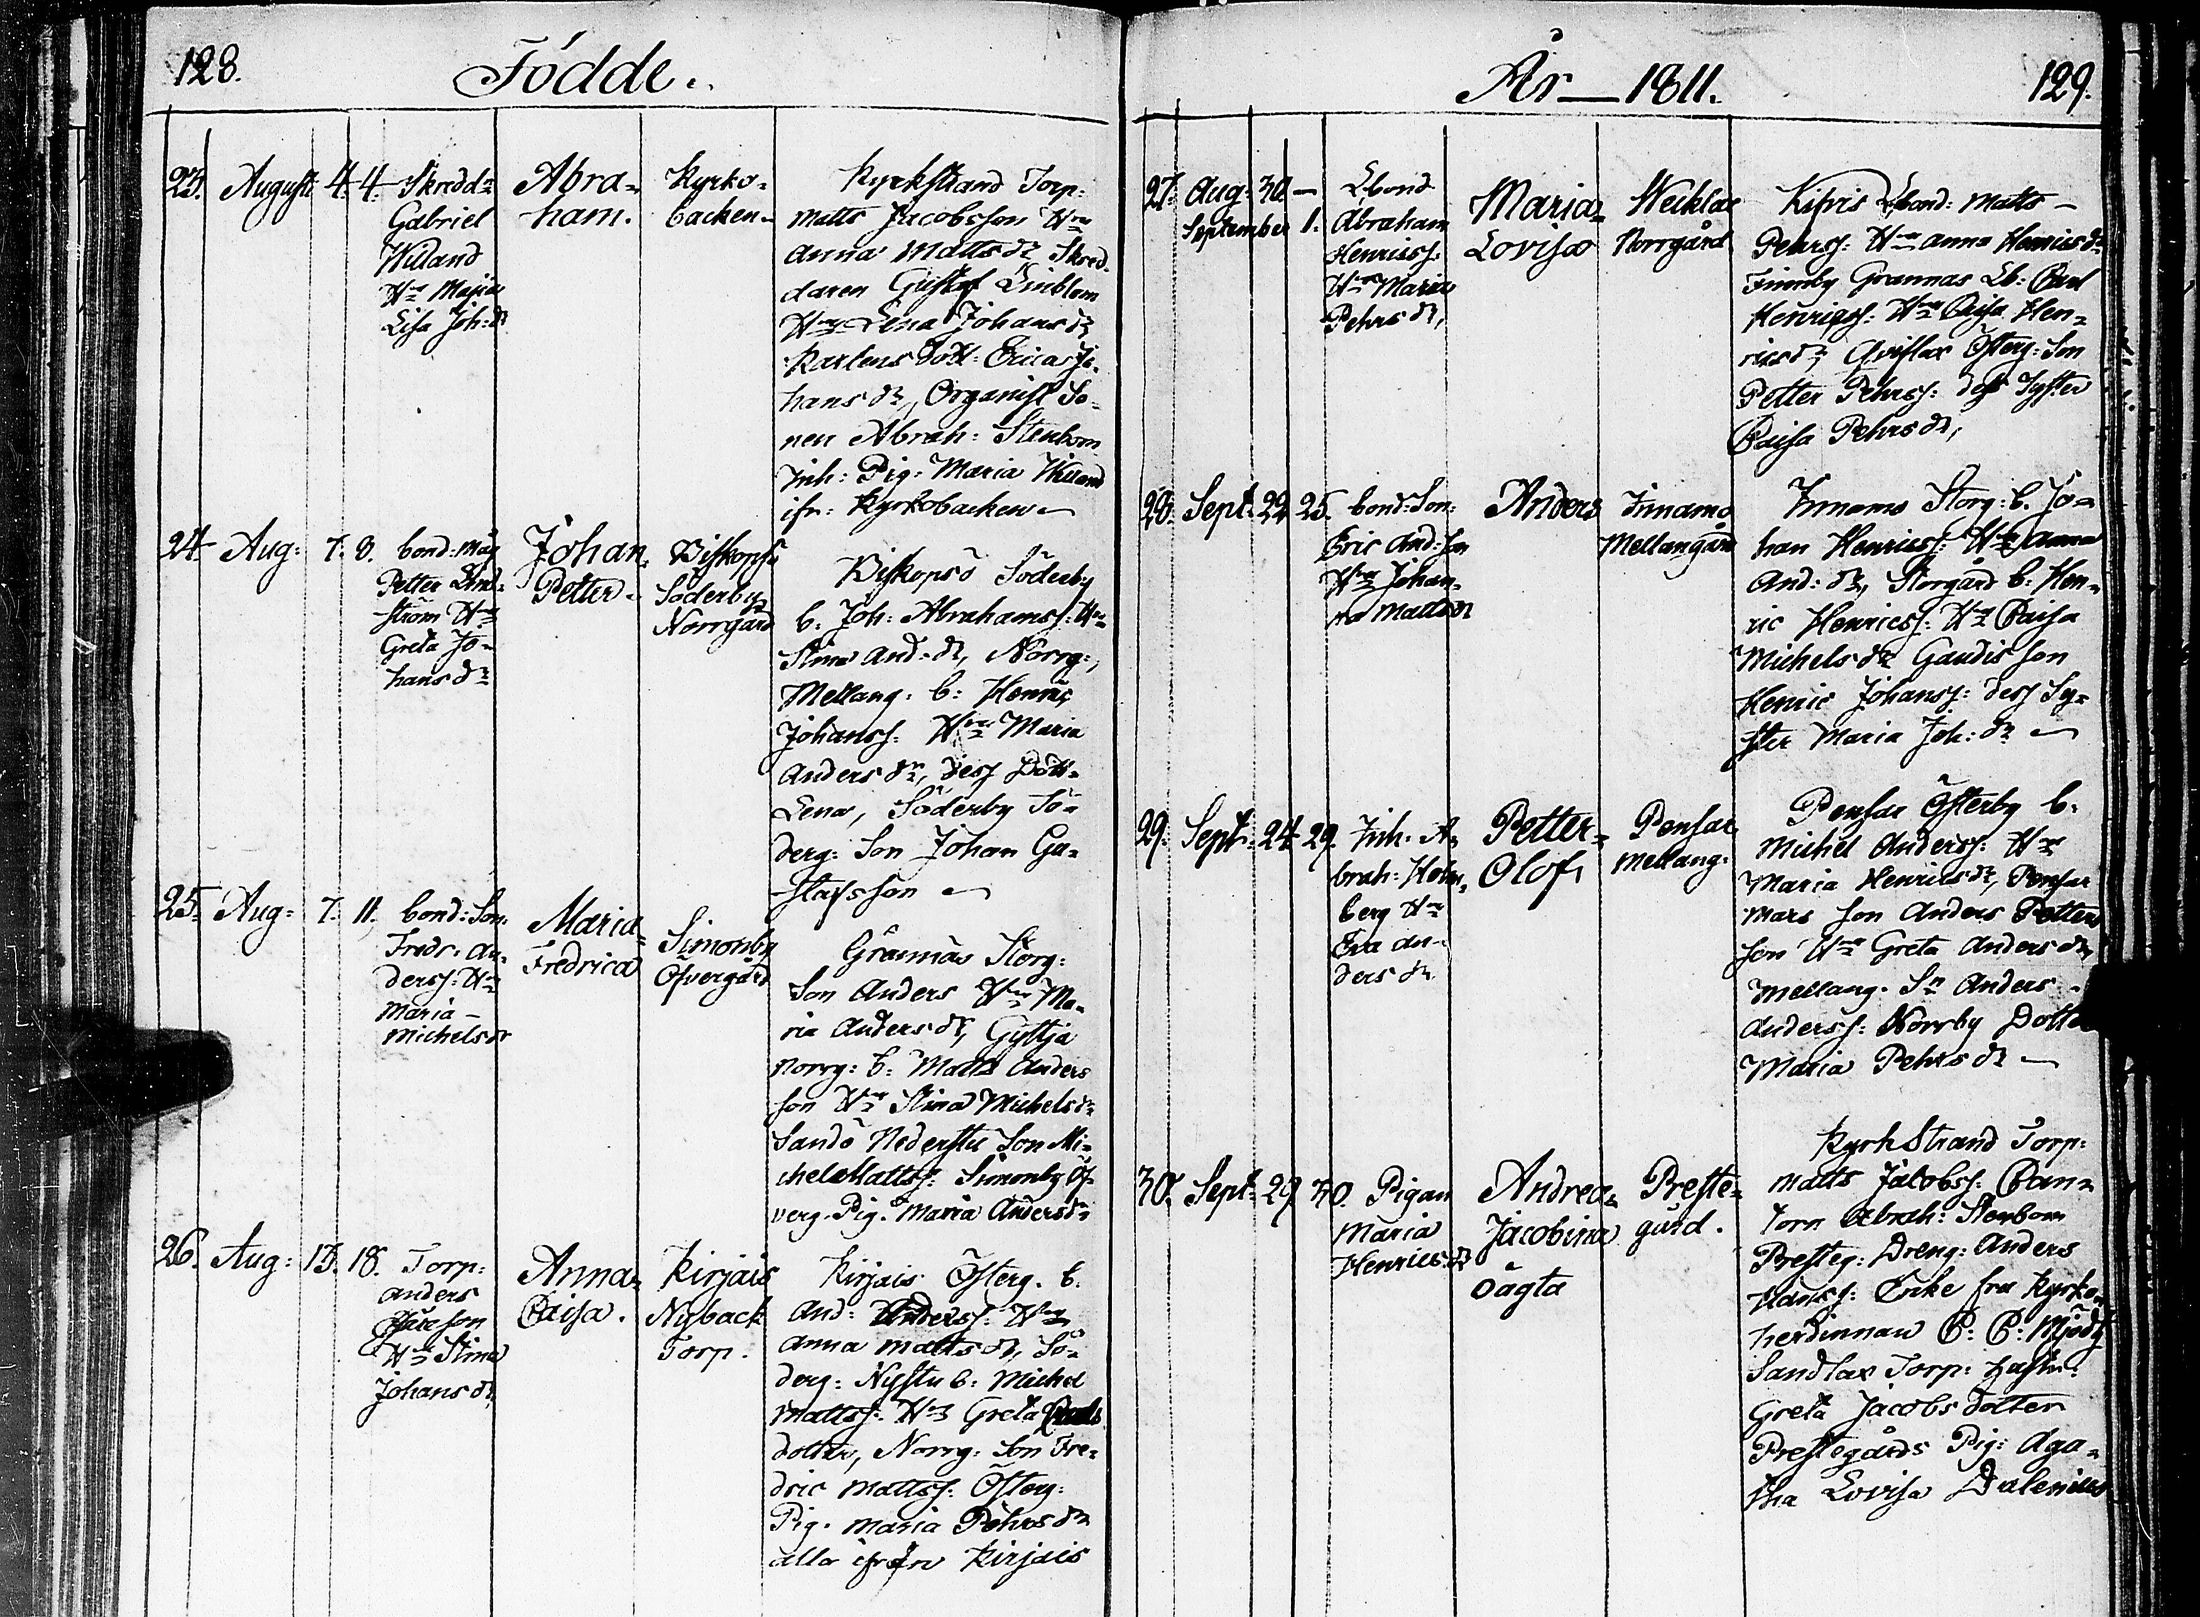 128.
Födde.
23. Augusti 4. 4. Skredd:
Gabriel
Willand
H:u Maja
Lisa Joh:dr
Abra-
ham.
Kyrko-
backen
Kyrkstrand Torp:
Matts Jacobsson H:u
Anna Mattsdr Skred-
daren Gustaf Lindblom
H:u Lena Johansdr
Karlens Dott: Erica Jo-
hansdr, Organist So-
nen Abrah: Stenbom
Inh: Pig: Maria Willand
ifr: Kyrkobacken
24 Aug: 7. 8. bond:Måg
Petter Lind-
ström H:u
Greta Jo-
hansdr
Johan
Petter
Biskopsö
Söderby
Norrgård
Biskopsö Söderby
b: Joh: Abrahamss: H:u
Stina And:dr, Norrg:,
Mellang: b: Henric
Johanss: H:u Maria
Andersdr, dess Dott:
Lena, Söderby Sö-
derg: Son Johan Gu-
stafsson
25. Aug: 7. 11. bond:Son:
Fredr: An-
derss: H:u
Maria
Michelsdr
Maria-
Fredrica
Simonby
Öfvergård
Grannäs Storg:
Son Anders H:u Ma-
ria Andersdr, Gyttja
Norrg: b: Matts Anders
son H:u Stina Michelsdr
Sandö Nederstu Son Mi-
chel Mattss: Simonby Öf-
verg. Pig: Maria Andersdr
26. Aug: 15. 18. Torp:
Anders
H:u Stina
Johansdr
Anna
Caisa.
Kirjais
Nyback
Torp.
Kirjais Österg. b:
And: Anderss: H:u
Anna Mattsdr, Sö-
derg: Nystu b: Michel
Mattss: H:u Greta
dotter, Norrg: Son Fre-
dric Mattss: Österg:
Pig: Maria Pehrsdr
alla ifrån Kirjais
År 1811.
129.
27. Aug: 30 —
September 1.
Lbond
Abraham
Henricss:
H:u Maria
Pehrsdr,
Maria-
Lovisa
Wecklax
Norrgård
Kifvis Lbond: Matts
Pehrss: H:u Anna Henricsdr
Finnby Grannas Lb: Carl
Henricss: H:u Caisa Hen-
ricsdr, Qviflax Österg: Son
Petter Pehrss: dess Syster
Caisa Pehrsdr,
28. Sept: 22 25. bond:Son:
Eric And:son
H:u Johan-
na Mattsdr
Anders
Innamo
Mellangård
Innamo Storg: b. Jo-
han Henricss: H:u Anna
And:dr, Storgård b: Hen-
ric Henricss: H:u Caisa
Michelsdr Gaudis Son
Henric Johanss: dess Sy-
ster Maria Joh:dr
29. Sept: 24 29. Inh. A-
brah: Holm-
berg H:u
Eva An-
dersdr
Petter-
Olof
Pensar
Mellang:
Pensar Österby b:
Michel Anderss: H:u
Maria Henricsdr, Pensar
Mars Son Anders Petters
son H:u Greta Andersdr
Mellang. Sn Anders
Anderss: Norrby Dotter
Maria Pehrsdr
30. Sept: 29 30. Pigan
Maria
Henricsdr
Andrea-
Jacobina
Oägta
Preste-
gård.
Kyrkstrand Torp:
Matts Jacobss: Can-
torn Abrah: Stenbom
Presteg: Dreng: Anders
Hanss: Enke fru Kyrko-
herdinnan C: C: Mjödh
Sandlax Torp: hustru
Greta Jacobsdotter
Prestegårds Pig: Aga-
tha Lovisa Dalenius